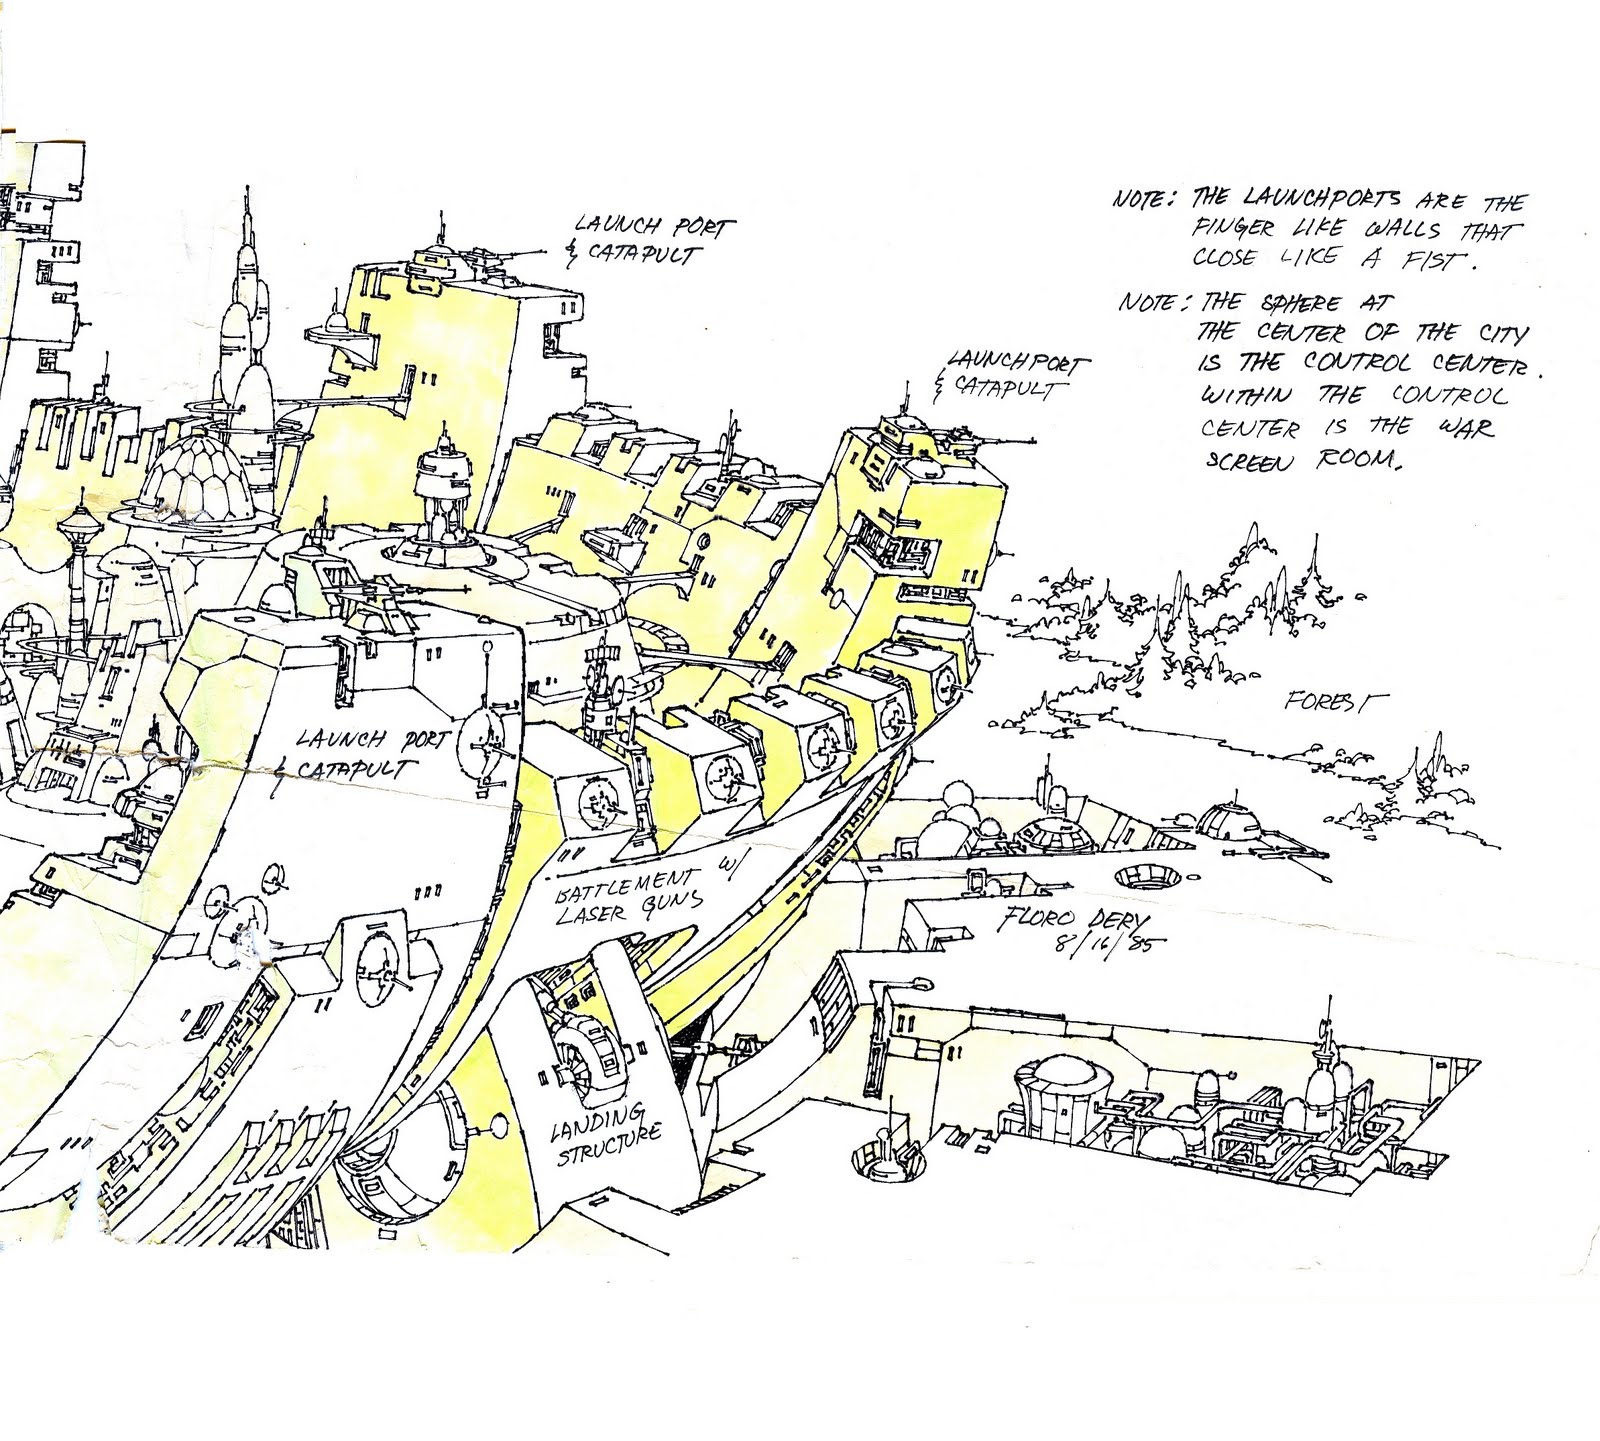 LAUNCH PORT
& CATAPULT
NOTE: THE LAUNCHPORTS ARE THE
FINGER LIKE WALLS THAT
CLOSE LIKE A FIST.
NOTE: THE SPHERE AT
THE CENTER OF THE CITY
IS THE CONTROL CENTER.
WITHIN THE CONTROL
CENTER IS THE WAR
SCREEN ROOM.
LAUNCHPORT
& CATAPULT
FOREST
LAUNCH PORT
& CATAPULT
BATTLEMENT W/
LASER GUNS
FLORO DERY
8/16/85
LANDING
STRUCTURE